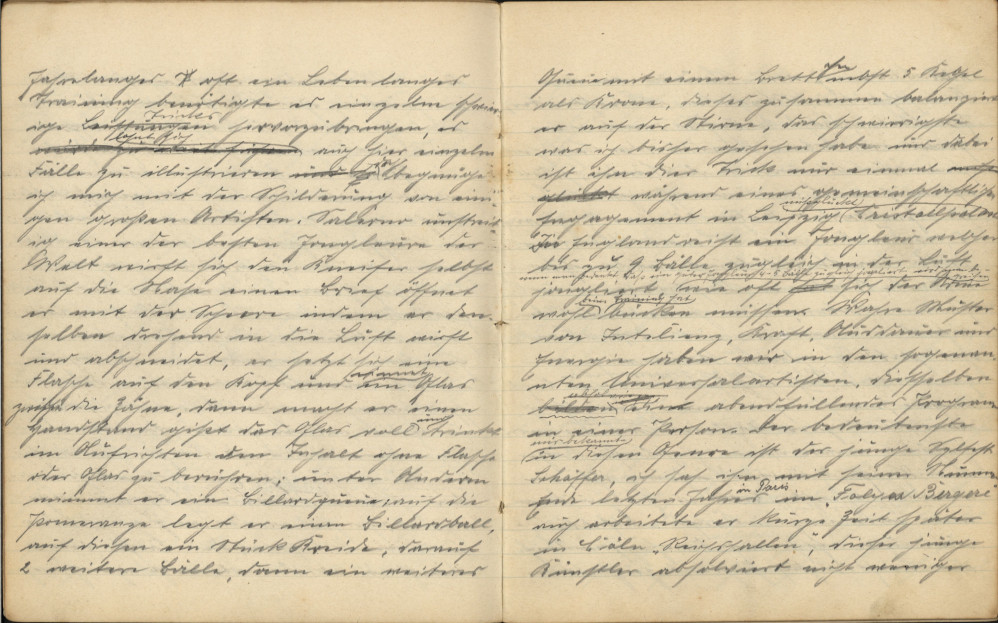 Jahrelanges oft ein Leben langes
Training benötigte es einzelne schwier-
ige Leistungen Tricks hervorzubringen, es
auch hier einzelne
Fälle zu illustrieren begnüge
ich mich mit der Schilderung von eini-
gen großen Artisten. Salerno unstreit-
ig einer der besten Jongleure der
Welt wirft sich den Kneifer selbst
auf die Nase einen Brief öffnet
er mit der Scheere indem er den-
selben drehend in die Luft wirft
und abschneidet, er setzt sich eine
Flasche auf den Kopf und nimmt ein Glas
zwischen die Zähne, dann macht er einen
Handstand gießt das Glas voll und trinkt
im Aufrichten den Inhalt ohne Flasche
oder Glas zu berühren; unter Anderem
nimmt er ein Billardqueue; auf die
Pomeranze legt er einen Billardball,
auf diesen ein Stück Kreide, darauf
2 weitere Bälle, dann ein weiteres
Queue mit einem Brett nebst 5 Kegel
als Krone, dieses zusammen balanziert
er auf der Stirne, das schwierigste
was ich bisher gesehen habe und dabei
ist ihm dieser Trick nur einmal
während eines gemeinschaftlichen
missglückt
Engagement in Leipzig (Kristallpalast
In England reist ein Jongleur welcher
bis zu 9 Bälle zugleich in der Luft
jongliert wie oft hat sich der
beim Training
wohl bücken müssen. Wahre Muster
von Intelienz, Kraft, Ausdauer und
Energie haben wir in den sogenan-
nten Universalartisten, dieselben
absolvieren ein abendfüllendes Program
in einer Person. Der bedeutenste
mir bekannte
in diesen Genre ist der junge Sylvest
Schäffer, ich sah ihn mit seinen
Ende letzten Jahres in Paris im "Folies Bergere"
auch arbeitete er kurze Zeit später
in Cöln "Reichshallen", dieser junge
Künstler absolviert nicht weniger